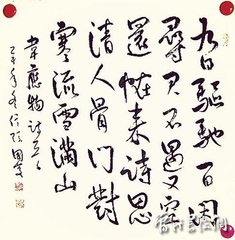 九日驅馳一日閑
尋君不遇又空
還怪来詩思
清人骨門對
寒流雪滿山
韋應物詩
年冬